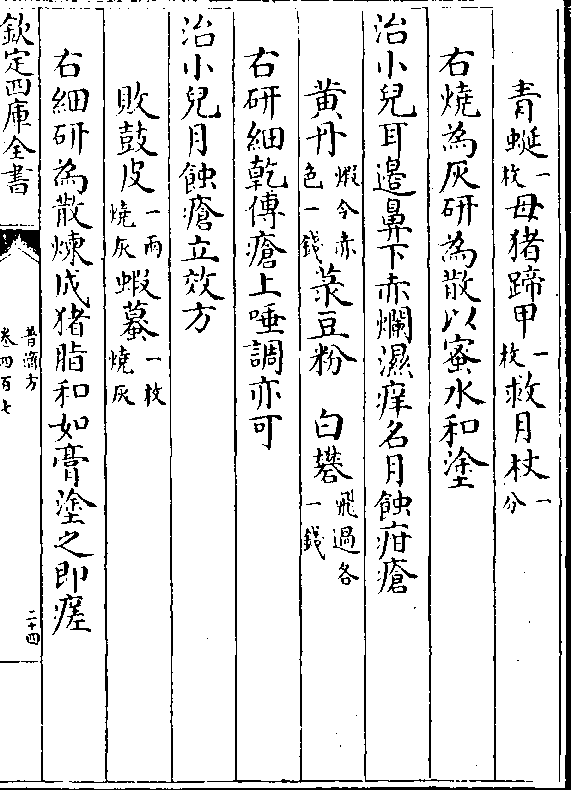 青蜒一枚母猪蹄甲一枚救月杖一分
右燒為灰研為散以蜜水和塗
治小兒耳邉鼻下赤爛濕痒名月蝕疳瘡
黄丹煆令赤色一錢菉豆粉 白礬飛過各一錢
右研細乾傅瘡上唾調亦可
治小兒月蝕瘡立效方
敗鼓皮一兩燒灰蝦蟇一枚燒灰
右細研為散煉成猪脂和如膏塗之即瘥
欽定四庫全書
普濟方
卷四百七
二十四